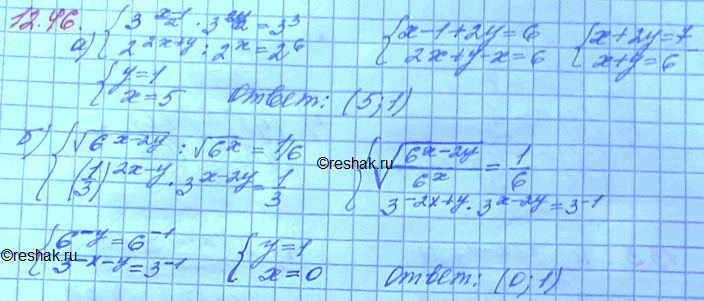 12.46.
а) { 3^((x-1)/2) · 3^(2y/2) = 3^3
2^(2x+y) : 2^x = 2^6
{ x-1+2y=6
2x+y-x=6
{ x+2y=7
x+y=6
{ y=1
x=5
Ответ: (5;1)
б) { √(6^(x-2y)) : √(6^x) = 1/6
(1/3)^(2x-y) · 3^(x-2y) = 1/3
{ √(6^(x-2y)/6^x) = 1/6
3^(-2x+y) · 3^(x-2y) = 3^(-1)
©reshak.ru
{ 6^(-y) = 6^(-1)
3^(-x-y) = 3^(-1)
{ y=1
x=0
Ответ: (0;1)
©reshak.ru
©reshak.ru